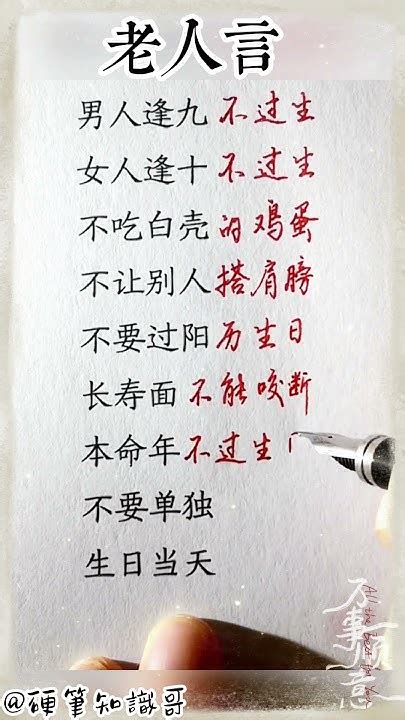 老人言
男人逢九不过生
女人逢十不过生
不吃白壳的鸡蛋
不让别人搭肩膀
不要过阳历生日
长寿面不能咬断
本命年不过生
不要单独
生日当天
万事顺意
All the best for you
@硬筆知識哥